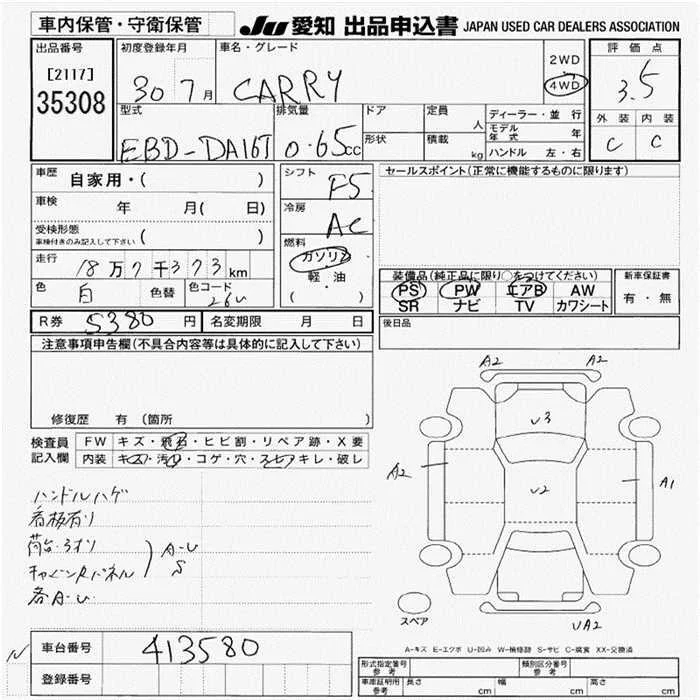 車内保管・守衛保管
JU 愛知 出品申込書 JAPAN USED CAR DEALERS ASSOCIATION
出品番号
[2117]
35308
初度登録年月
30 7月
車名・グレード
CARRY
2WD
4WD
評価点
3.5
外装 内装
C C
型式
EBD-DA16T
排気量
0.65cc
ドア
形状
定員
人
積載
kg
ディーラー・並行
モデル年式 年
ハンドル 左・右
車歴 自家用・( )
車検 年 月( 日)
受検形態
車検付きのみ記入して下さい ( )
走行 18万7千373km
色 白 色替 色コード 26U
シフト F5
冷房 AC
燃料
ガソリン
軽・油
( ・ )
R券 5380円 名変期限 月 日
セールスポイント(正常に機能するものに限ります)
装備品(純正品に限り○をつけてください)
PS PW エアB AW
SR ナビ TV カワシート
新車保証書
有・無
後日品
注意事項申告欄(不具合内容等は具体的に記入して下さい)
修復歴 有 (箇所 )
検査員記入欄
FW キズ・飛石・ヒビ割・リペア跡・X要
内装 キズ・汚れ・コゲ・穴・スレ・キレ・破レ
ハンドルハゲ
看板有り
A-U
S
各A-U
A2 A2
U3
A2
U2
A1
UA2
スペア
A-キズ E-エクボ U-凹み W-補修跡 S-サビ C-腐食 XX-交換済
N
車台番号 413580
登録番号
形式指定番号
参考
類別区分番号
参考
車庫証明用
参考
長さ cm 幅 cm 高さ cm